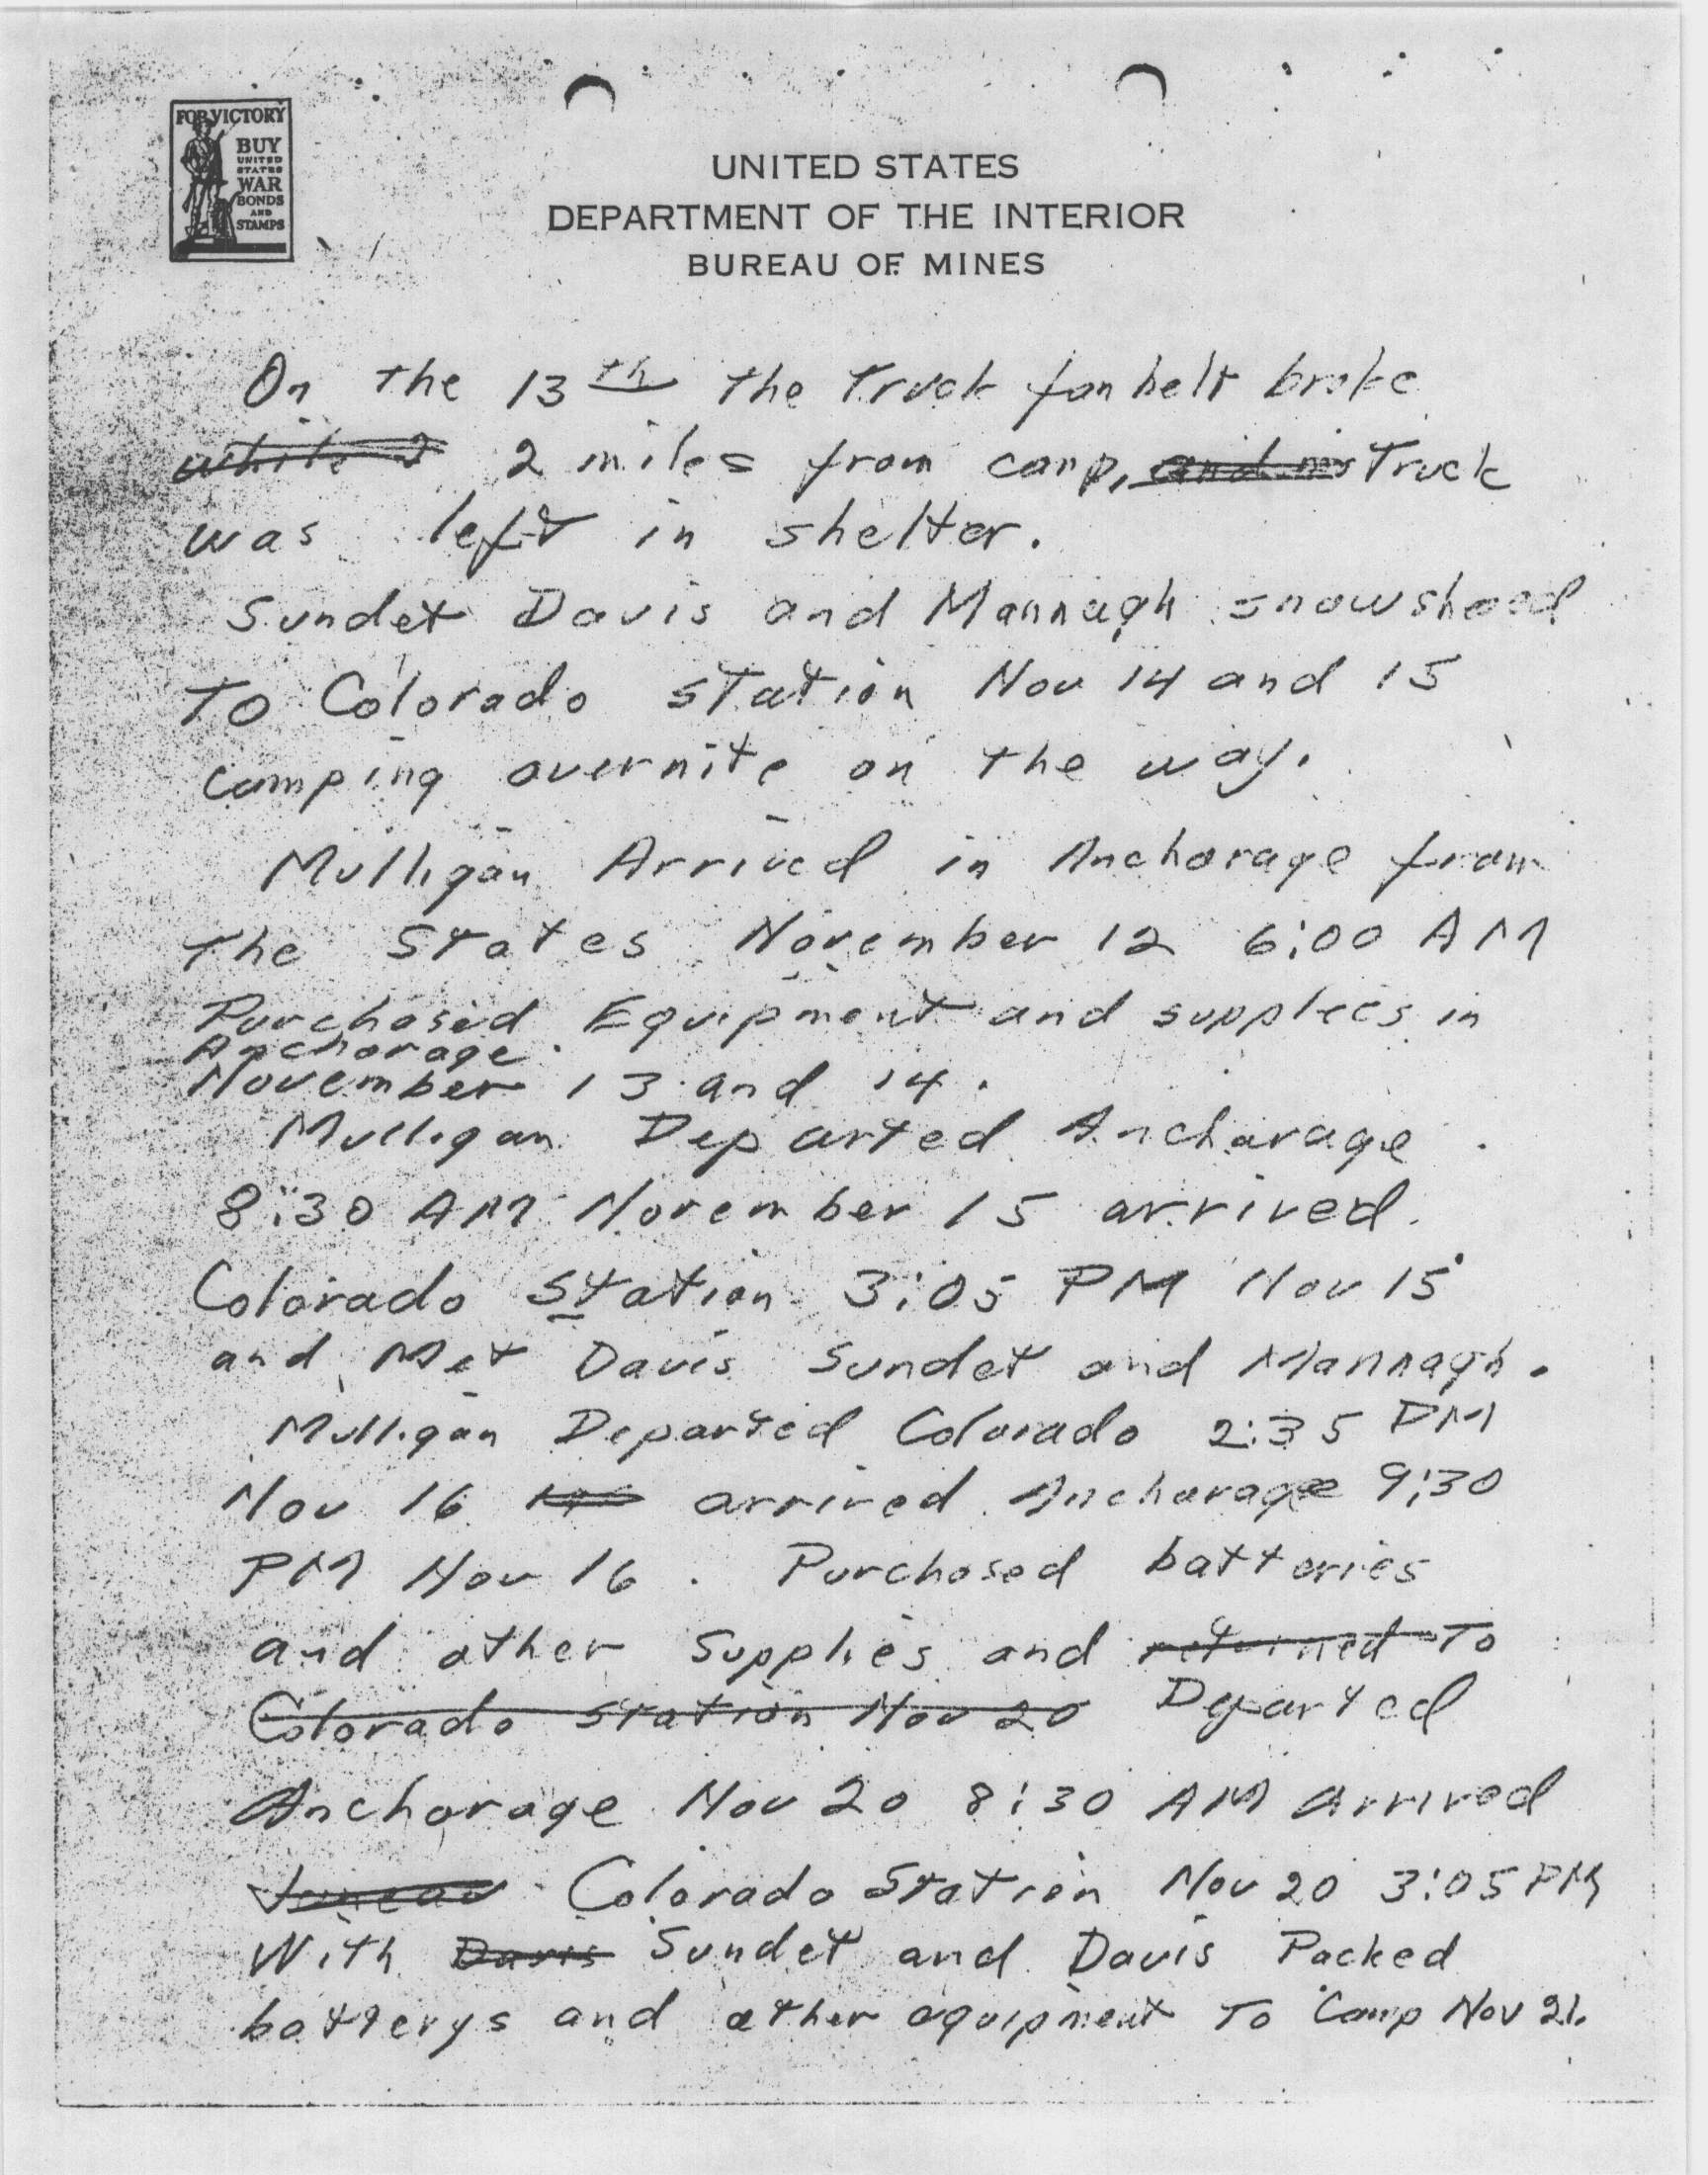 FOR VICTORY
BUY
UNITED
STATES
WAR
BONDS
AND
STAMPS
UNITED STATES
DEPARTMENT OF THE INTERIOR
BUREAU OF MINES
On the 13th the Truck fan belt broke
while 2 2 miles from camp, and Truck
was left in shelter.
Sundet Davis and Mannagh snowshoed
To Colorado station Nov 14 and 15
camping overnite on the way.
Mulligan Arrived in Anchorage from
The States November 12 6:00 AM
Purchased Equipment and supplies in
Anchorage
November 13 and 14.
Mulligan Departed Anchorage
8:30 AM November 15 arrived
Colorado Station 3:05 PM Nov 15
and Met Davis Sundet and Mannagh.
Mulligan Departed Colorado 2:35 PM
Nov 16 arrived Anchorage 9:30
PM Nov 16. Purchased batteries
and other Supplies and returned To
Colorado station Nov 20 Departed
Anchorage Nov 20 8:30 AM Arrived
Juneau Colorado Station Nov 20 3:05 PM
With Davis Sundet and Davis Packed
batterys and other equipment To Camp Nov 21.